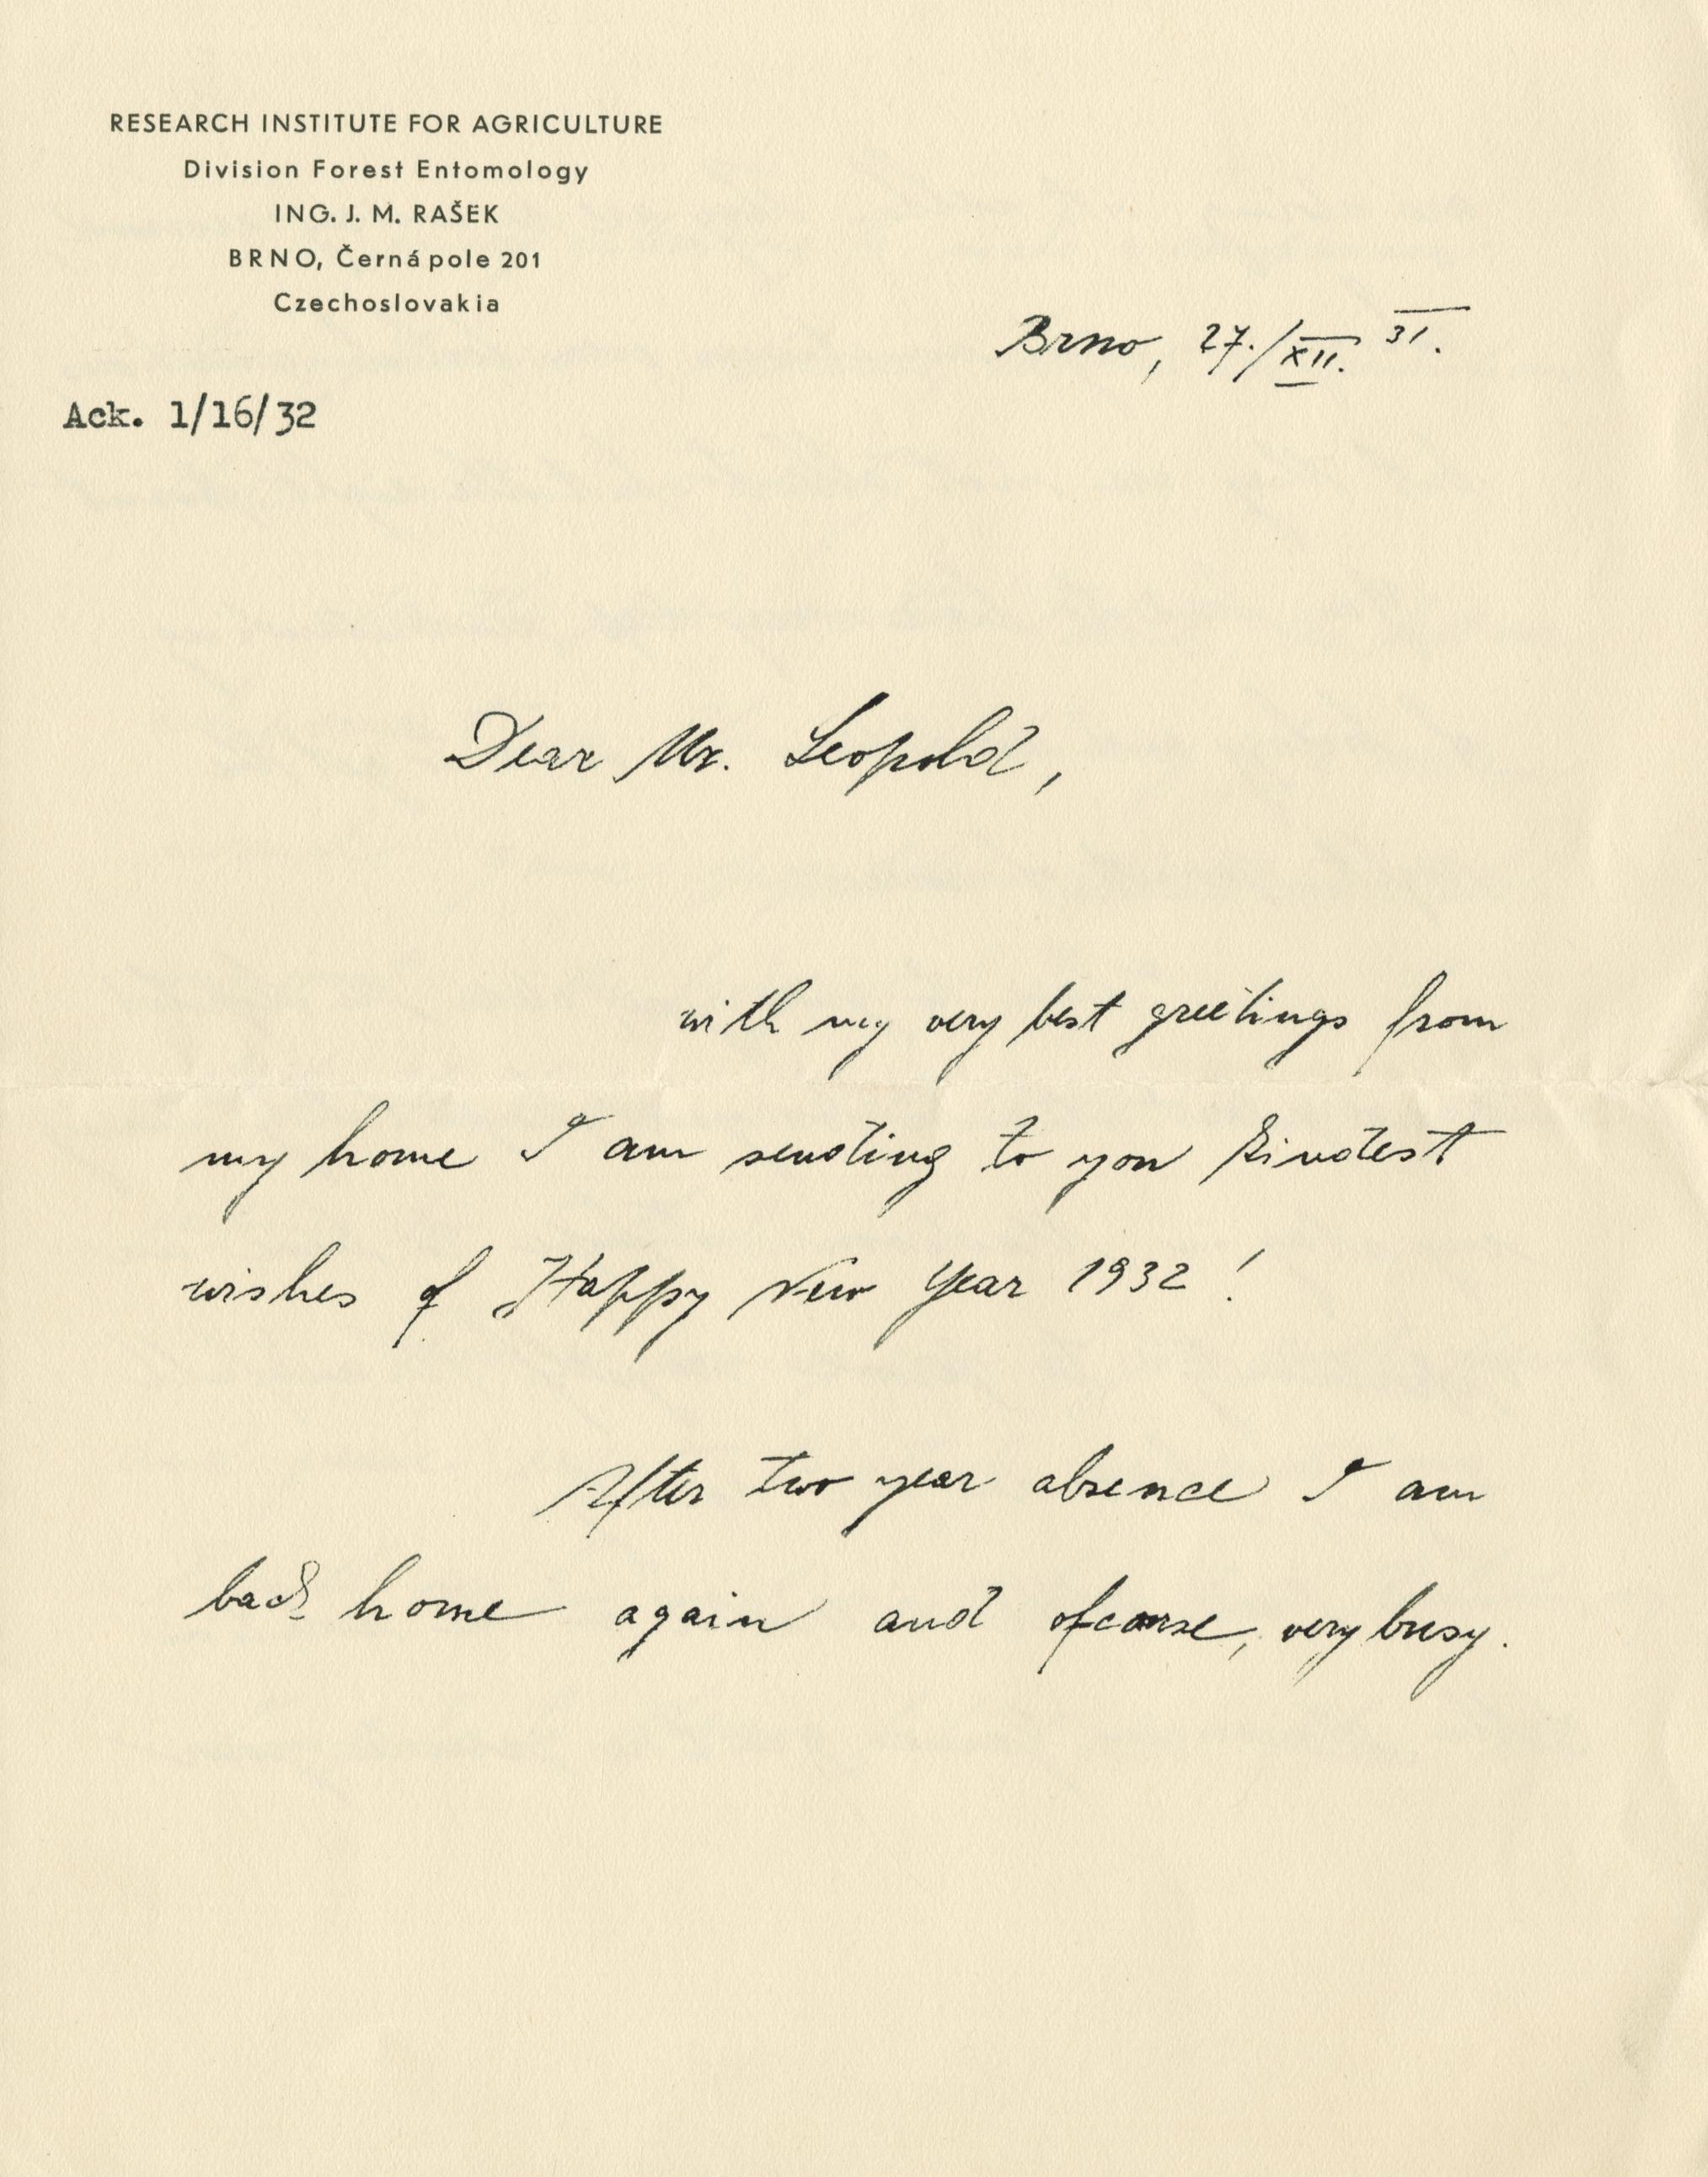 RESEARCH INSTITUTE FOR AGRICULTURE
Division Forest Entomology
ING. J. M. RAŠEK
BRNO, Černá pole 201
Czechoslovakia
Brno, 27./XII. 31.
Ack. 1/16/32
Dear Mr. Leopold,
with my very best greetings from
my home I am sending to you kindest
wishes of Happy New Year 1932!
After two year absence I am
back home again and ofcourse, very busy.